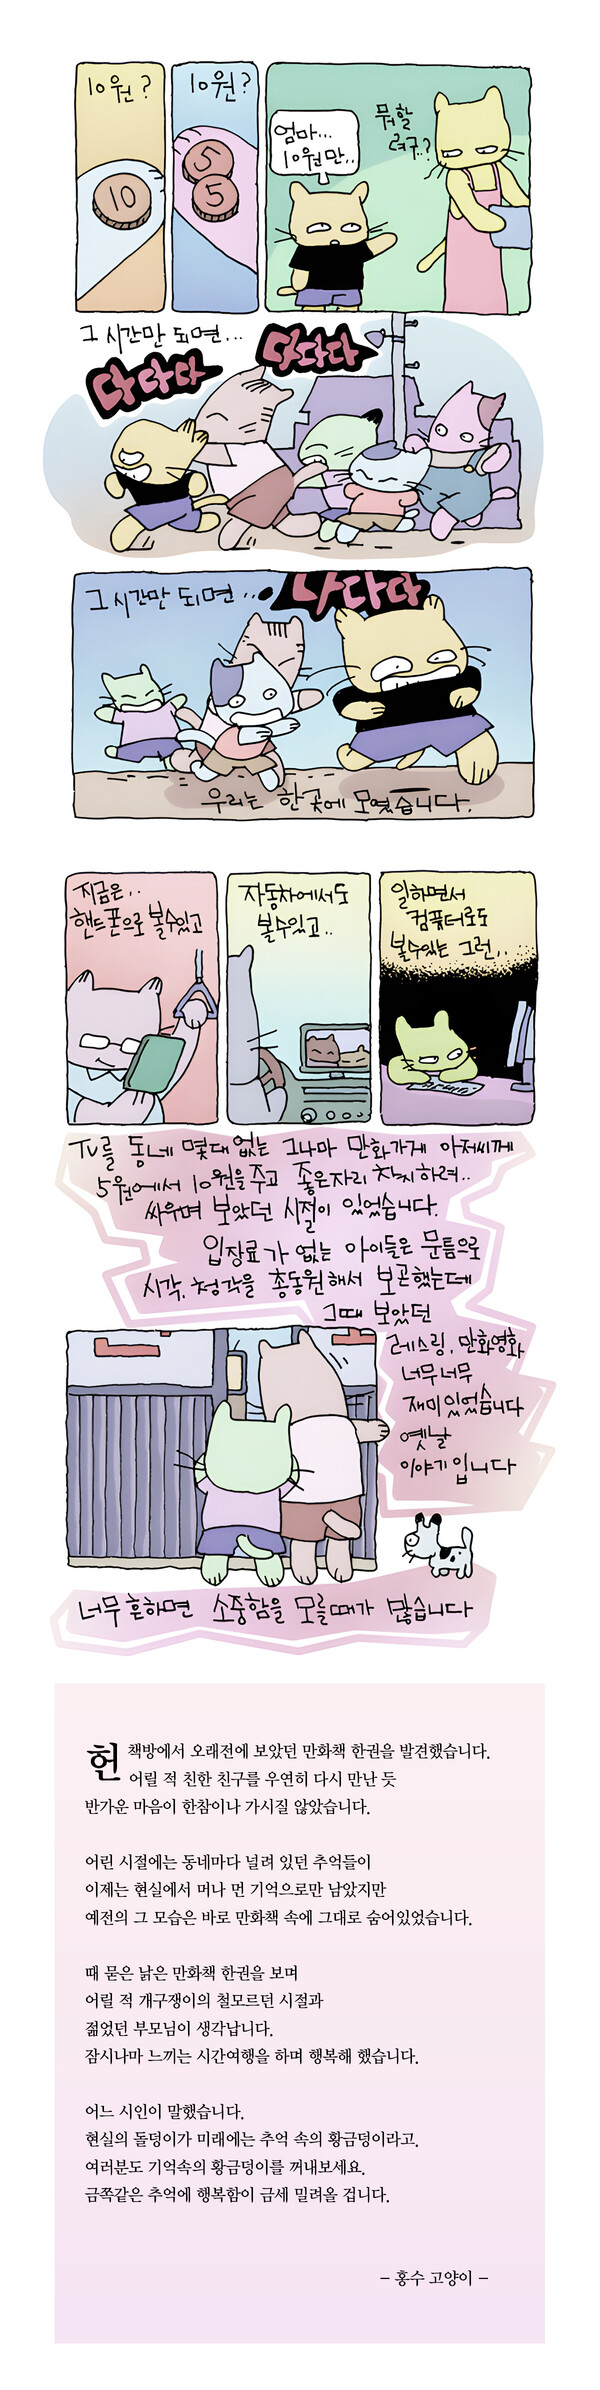 10원?
10원?
10
5
5
엄마...
10원만..
뭐할
려구..?
그 시간만 되면...
다다다
다다다
그 시간만 되면..
다다다
우리는 한곳에 모였습니다.
지금은..
핸드폰으로 볼수있고
자동차에서도
볼수있고..
일하면서
컴퓨터로도
볼수있는 그런..
TV를 동네 몇대없는 그나마 만화가게 아저씨께
5원에서 10원을 주고 좋은자리 차지하려..
싸우며 보았던 시절이 있었습니다.
입장료가 없는 아이들은 문틈으로
시각, 청각을 총동원해서 보곤했는데
그때 보았던
레스링, 만화영화
너무너무
재미있었습니다
옛날
이야기입니다
너무 흔하면 소중함을 모를때가 많습니다
헌책방에서 오래전에 보았던 만화책 한권을 발견했습니다.
어릴 적 친한 친구를 우연히 다시 만난 듯
반가운 마음이 한참이나 가시질 않았습니다.
어린 시절에는 동네마다 널려 있던 추억들이
이제는 현실에서 머나 먼 기억으로만 남았지만
예전의 그 모습은 바로 만화책 속에 그대로 숨어있었습니다.
때 묻은 낡은 만화책 한권을 보며
어릴 적 개구쟁이의 철모르던 시절과
젊었던 부모님이 생각납니다.
잠시나마 느끼는 시간여행을 하며 행복해 했습니다.
어느 시인이 말했습니다.
현실의 돌덩이가 미래에는 추억 속의 황금덩이라고.
여러분도 기억속의 황금덩이를 꺼내보세요.
금쪽같은 추억에 행복함이 금세 밀려올 겁니다.
– 홍수 고양이 –